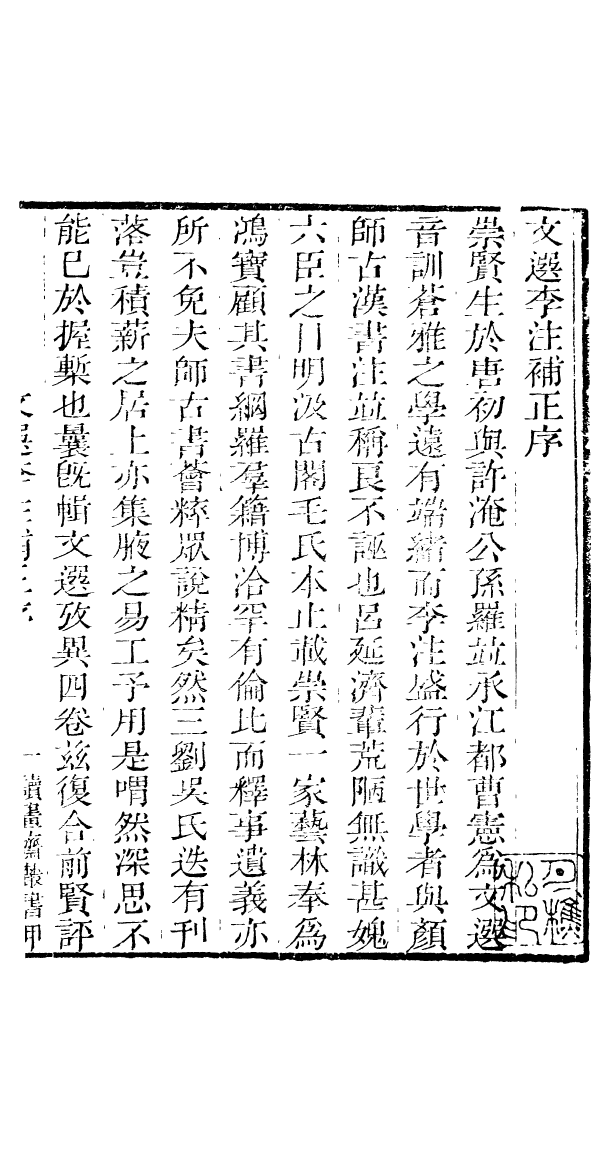 文選李注補正序
崇賢生於唐初與許淹公孫羅並承江都曹憲爲文選
音訓蒼雅之學遠有端緒而李注盛行於世學者與顏
師古漢書注並稱良不誣也呂延濟輩荒陋無識甚媿
六臣之目明汲古閣毛氏本止載崇賢一家藝林奉爲
鴻寶顧其書網羅羣籍博洽罕有倫比而釋事遺義亦
所不免夫師古書薈粹眾說精矣然三劉吳氏迭有刊
落豈積薪之居上亦集腋之易工予用是喟然深思不
能已於握槧也曩旣輯文選攷異四卷茲復合前賢評
文選李注補正序
一 讀畫齋叢書甲